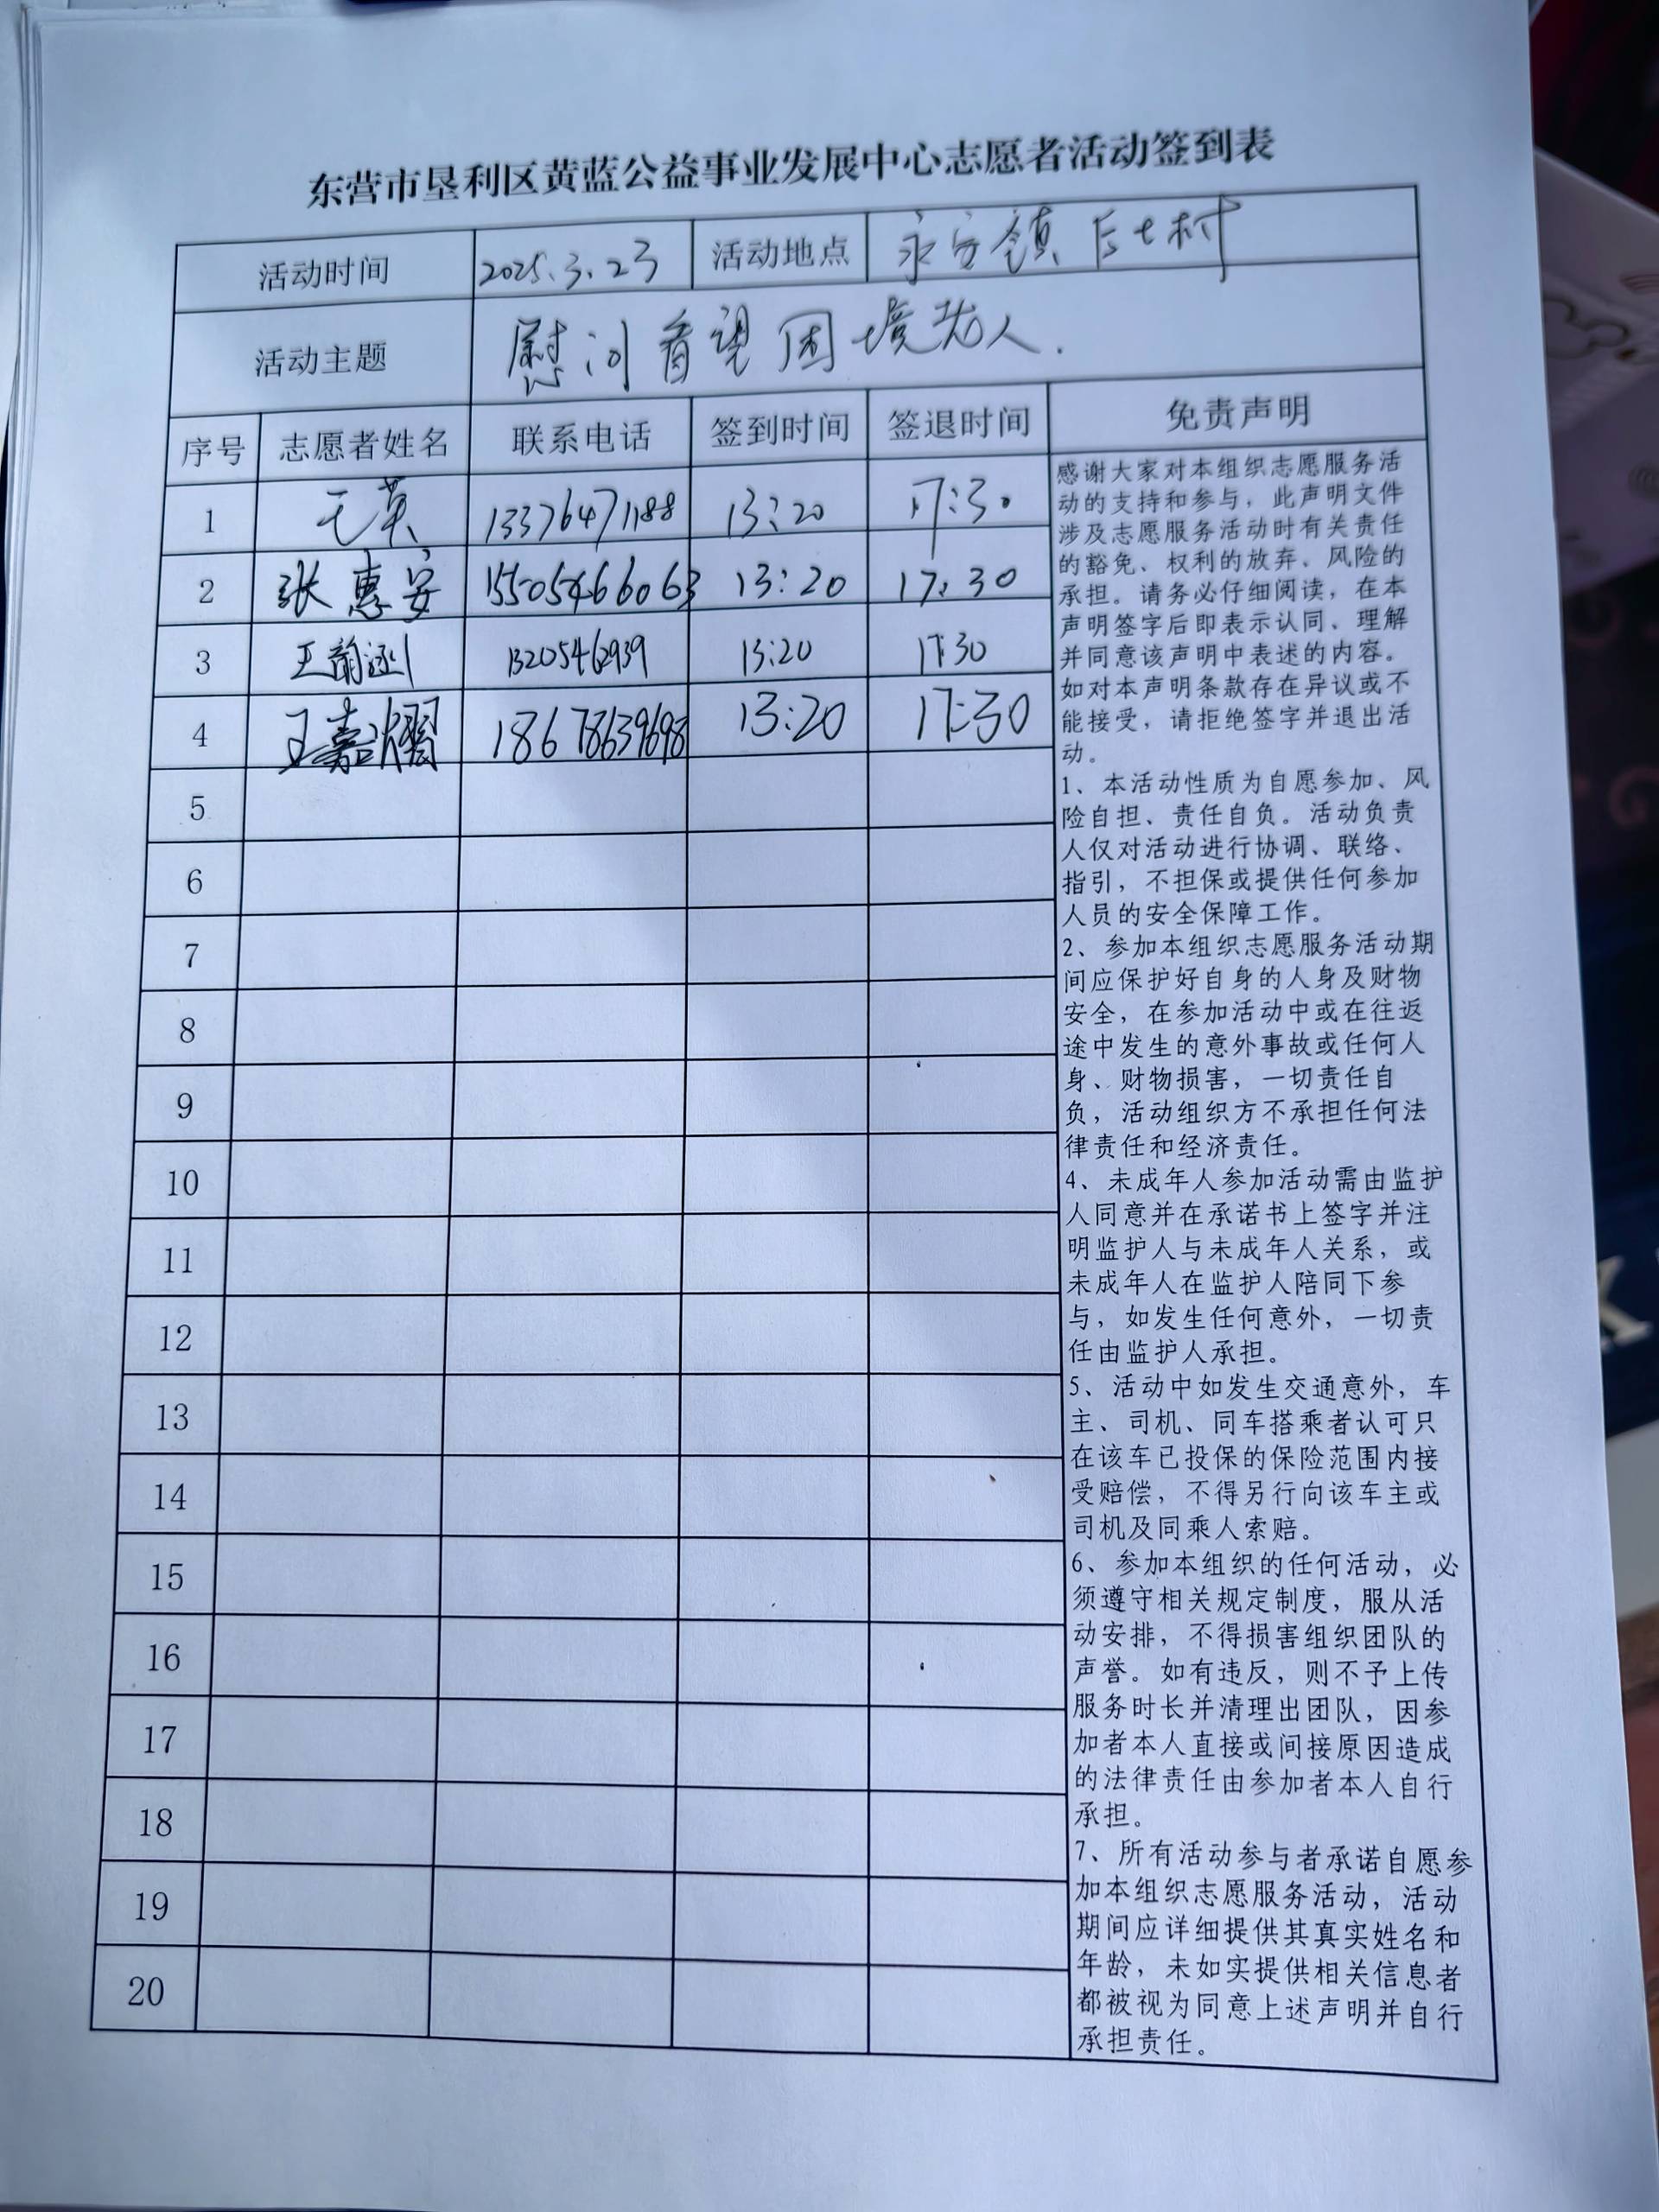 东营市垦利区黄蓝公益事业发展中心志愿者活动签到表
活动时间 2025.3.23 活动地点 永安镇 后七村
活动主题 慰问看望困境老人.
序号 志愿者姓名 联系电话 签到时间 签退时间 免责声明
1 王英 13376471188 13:20 17:30
2 张惠安 15505466063 13:20 17:30
3 王韵涵 13205462939 13:20 17:30
4 王嘉熠 18678639698 13:20 17:30
5
6
7
8
9
10
11
12
13
14
15
16
17
18
19
20
感谢大家对本组织志愿服务活
动的支持和参与，此声明文件
涉及志愿服务活动时有关责任
的豁免、权利的放弃、风险的
承担。请务必仔细阅读，在本
声明签字后即表示认同、理解
并同意该声明中表述的内容。
如对本声明条款存在异议或不
能接受，请拒绝签字并退出活
动。
1、本活动性质为自愿参加、风
险自担、责任自负。活动负责
人仅对活动进行协调、联络、
指引，不担保或提供任何参加
人员的安全保障工作。
2、参加本组织志愿服务活动期
间应保护好自身的人身及财物
安全，在参加活动中或在往返
途中发生的意外事故或任何人
身、财物损害，一切责任自
负，活动组织方不承担任何法
律责任和经济责任。
4、未成年人参加活动需由监护
人同意并在承诺书上签字并注
明监护人与未成年人关系，或
未成年人在监护人陪同下参
与，如发生任何意外，一切责
任由监护人承担。
5、活动中如发生交通意外，车
主、司机、同车搭乘者认可只
在该车已投保的保险范围内接
受赔偿，不得另行向该车主或
司机及同乘人索赔。
6、参加本组织的任何活动，必
须遵守相关规定制度，服从活
动安排，不得损害组织团队的
声誉。如有违反，则不予上传
服务时长并清理出团队，因参
加者本人直接或间接原因造成
的法律责任由参加者本人自行
承担。
7、所有活动参与者承诺自愿参
加本组织志愿服务活动，活动
期间应详细提供其真实姓名和
年龄，未如实提供相关信息者
都被视为同意上述声明并自行
承担责任。